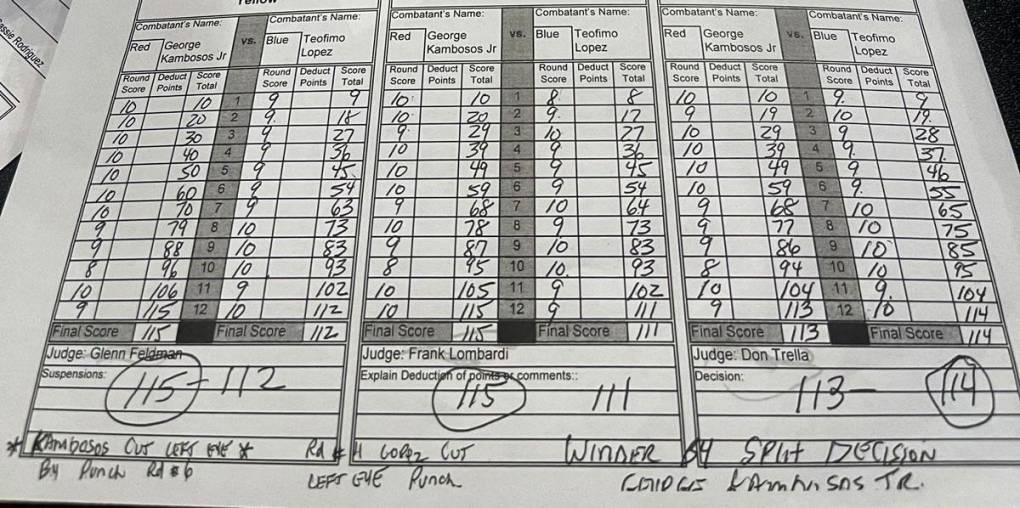 Yellow
assie Rodriguez
Combatant's Name: Combatant's Name: Combatant's Name: Combatant's Name: Combatant's Name: Combatant's Name:
Red George Kambosos Jr vs. Blue Teofimo Lopez Red George Kambosos Jr vs. Blue Teofimo Lopez Red George Kambosos Jr vs. Blue Teofimo Lopez
Round Score Deduct Points Score Total Round Score Deduct Points Score Total Round Score Deduct Points Score Total Round Score Deduct Points Score Total Round Score Deduct Points Score Total Round Score Deduct Points Score Total
10 10 1 9 9 10 10 1 8 8 10 10 1 9 9
10 20 2 9 18 10 20 2 9 17 9 19 2 10 19
10 30 3 9 27 9 29 3 10 27 10 29 3 9 28
10 40 4 9 36 10 39 4 9 36 10 39 4 9 37
10 50 5 9 45 10 49 5 9 45 10 49 5 9 46
10 60 6 9 54 10 59 6 9 54 10 59 6 9 55
10 70 7 9 63 9 68 7 10 64 9 68 7 10 65
9 79 8 10 73 10 78 8 9 73 9 77 8 10 75
9 88 9 10 83 9 87 9 10 83 9 86 9 10 85
8 96 10 10 93 8 95 10 10 93 8 94 10 10 95
10 106 11 9 102 10 105 11 9 102 10 104 11 9 104
9 115 12 10 112 10 115 12 9 111 9 113 12 10 114
Final Score 115 Final Score 112 Final Score 115 Final Score 111 Final Score 113 Final Score 114
Judge: Glenn Feldman Judge: Frank Lombardi Judge: Don Trella
Suspensions: Explain Deduction of points or comments:: Decision:
115 - 112 115 111 113 - 114
* KAMBOSOS CUT LEFT EYE * Rd # 11 LOPEZ CUT WINNER BY SPLIT DECISION
By Punch Rd #6 LEFT EYE Punch KAMBOSOS JR.